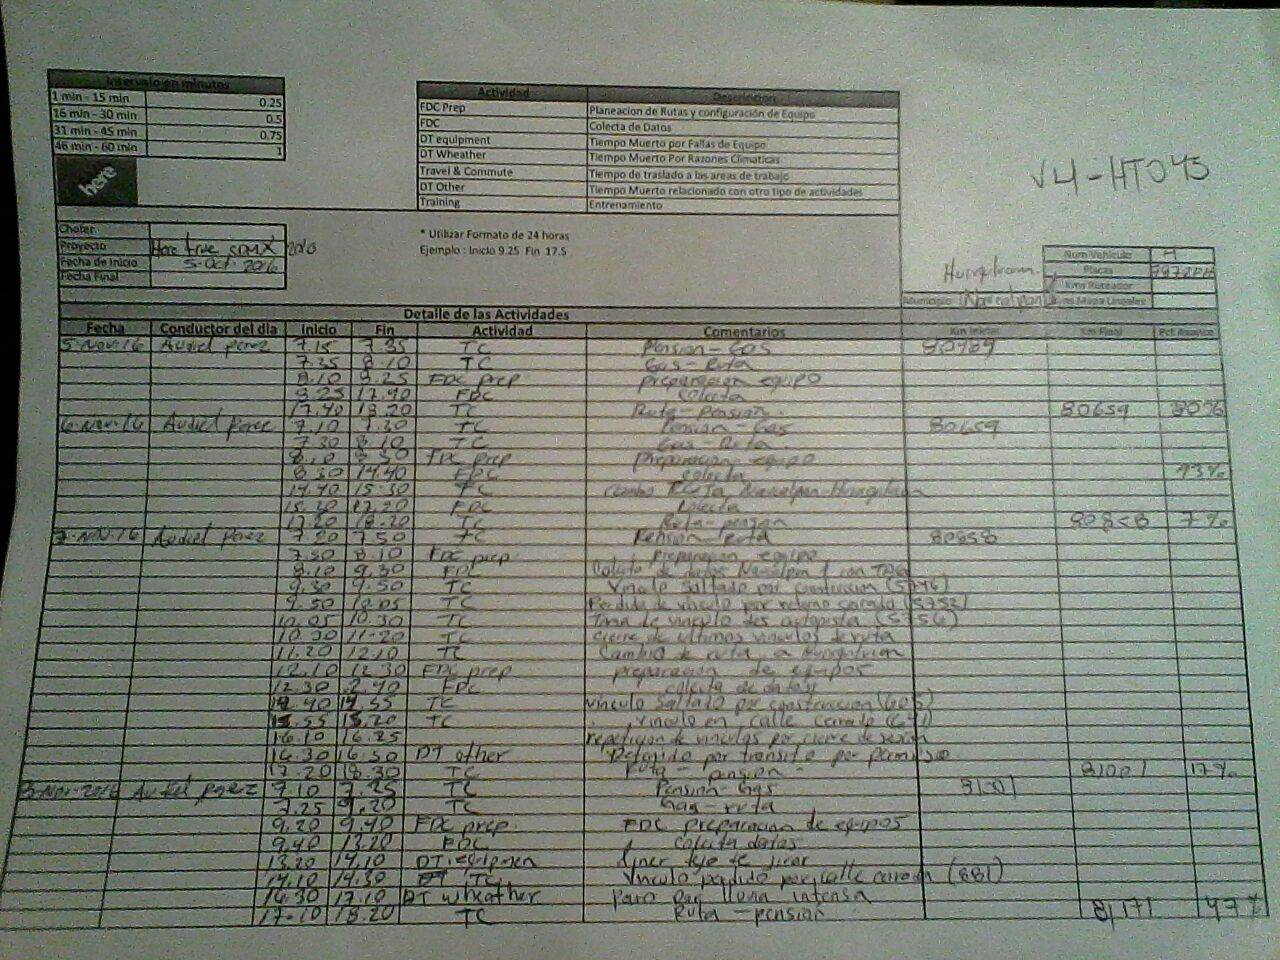 Intervalo en minutos
1 min - 15 min 0.25
16 min - 30 min 0.5
31 min - 45 min 0.75
46 min - 60 min 1
here
Actividad Descripcion
FDC Prep Planeacion de Rutas y configuración de Equipo
FDC Colecta de Datos
DT equipment Tiempo Muerto por Fallas de Equipo
DT Wheather Tiempo Muerto Por Razones Climaticas
Travel & Commute Tiempo de traslado a las areas de trabajo
DT Other Tiempo Muerto relacionado con otro tipo de actividades
Training Entrenamiento
V4-HT043
* Utilizar Formato de 24 horas
Ejemplo : Inicio 9.25 Fin 17.5
Chofer
Proyecto Here true CDMX 2016
Fecha de Inicio 5-Oct-2016
Fecha Final
Num Vehiculo
Placas
Kms Ruteador
Municipio Kms Mapa Lineales
Detalle de las Actividades
Fecha Conductor del dia Inicio Fin Actividad Comentarios Km Inicial Km Final Pct Avance
5-Nov-16 Audiel perez 7.15 7.35 TC Pension-Gas 80489
7.35 8.10 TC Gas-Ruta
8.10 8.25 FDC prep preparacion equipo
8.25 17.40 FDC colecta
17.40 18.20 TC Ruta-pension. 80659 80%
6-Nov-16 Audiel perez 7.10 7.30 TC Pension-Gas 80659
7.30 8.10 TC Gas-Ruta.
8.10 8.30 FDC prep preparacion equipo
8.30 14.40 FDC colecta 93%
14.40 15.30 TC cambio Naucalpan-Huixquilucan
15.30 17.20 FDC colecta
17.20 18.20 TC Ruta-pension 80858 7%
7-Nov-16 Audiel perez 7.20 7.50 TC Pension-Ruta 80858
7.50 8.10 FDC prep. preparacion equipo
8.10 9.30 FDC Colecta de datos Naucalpan
9.30 9.50 TC Vinculo saltado por construccion (5746)
9.50 10.05 TC Perdida de vinculo por retorno cerrado (5752)
10.05 10.30 TC Toma de vinculo autopista (5756)
10.30 11.20 TC cierre de ultimos vinculos de ruta
11.20 12.10 TC Cambio de ruta a Huixquilucan
12.10 12.30 FDC prep preparacion de equipos
12.30 2.40 FDC colecta de datos
14.55 TC vinculo saltado por construccion (605)
15.20 TC vinculo en calle cerrada (641)
16.10 16.25 repeticion de vinculos por cierre de sesion
16.30 16.50 DT other Detenido por transito por permiso
17.20 18.30 TC Ruta - pension 81001 17%
8-Nov-2016 Audiel perez 7.10 7.25 TC Pension-Gas 81001
7.25 9.20 TC Gas-ruta
9.20 9.40 FDC prep. FDC preparacion de equipos
9.40 13.20 FDC colecta datos
13.20 14.10 DT.equipmen
14.10 14.30 TC Vinculo perdido por calle cerrada (881)
16.30 17.10 DT wheather Paro por lluvia intensa
17.10 18.20 TC Ruta - pension 81171 47%